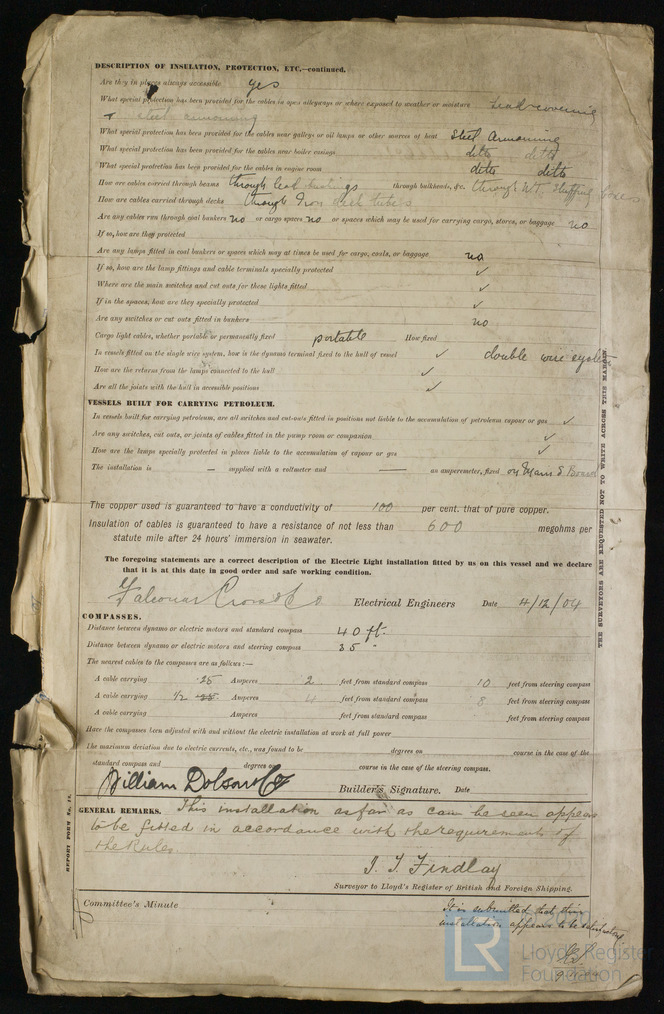 DESCRIPTION OF INSULATION, PROTECTION, ETC.—continued.
Are they in places always accessible yes
What special protection has been provided for the cables in open alleyways or where exposed to weather or moisture Lead covering
+ steel armouring
What special protection has been provided for the cables near galleys or oil lamps or other sources of heat Steel Armouring
What special protection has been provided for the cables near boiler casings ditto ditto
What special protection has been provided for the cables in engine room ditto ditto
How are cables carried through beams through lead bushings through bulkheads, &c. through W.T. Stuffing boxes
How are cables carried through decks through Iron deck tubes
Are any cables run through coal bunkers no or cargo spaces no or spaces which may be used for carrying cargo, stores, or baggage no
If so, how are they protected
Are any lamps fitted in coal bunkers or spaces which may at times be used for cargo, coals, or baggage no
If so, how are the lamp fittings and cable terminals specially protected ✓
Where are the main switches and cut outs for these lights fitted ✓
If in the spaces, how are they specially protected ✓
Are any switches or cut outs fitted in bunkers no
Cargo light cables, whether portable or permanently fixed portable How fixed
In vessels fitted on the single wire system, how is the dynamo terminal fixed to the hull of vessel ✓ double wire system
How are the returns from the lamps connected to the hull ✓
Are all the joints with the hull in accessible positions ✓
VESSELS BUILT FOR CARRYING PETROLEUM.
In vessels built for carrying petroleum, are all switches and cut-outs fitted in positions not liable to the accumulation of petroleum vapour or gas ✓
Are any switches, cut outs, or joints of cables fitted in the pump room or companion ✓
How are the lamps specially protected in places liable to the accumulation of vapour or gas ✓
The installation is — supplied with a voltmeter and — an amperemeter, fixed on Main S. Board
The copper used is guaranteed to have a conductivity of 100 per cent. that of pure copper.
Insulation of cables is guaranteed to have a resistance of not less than 600 megohms per
statute mile after 24 hours' immersion in seawater.
The foregoing statements are a correct description of the Electric Light installation fitted by us on this vessel and we declare
that it is at this date in good order and safe working condition.
Falconar Cross & Co Electrical Engineers Date 4/12/04
COMPASSES.
Distance between dynamo or electric motors and standard compass 40 ft.
Distance between dynamo or electric motors and steering compass 35 "
The nearest cables to the compasses are as follows:—
A cable carrying .25 Amperes 2 feet from standard compass 10 feet from steering compass
A cable carrying 1/2 .25 Amperes 4 feet from standard compass 8 feet from steering compass
A cable carrying Amperes feet from standard compass feet from steering compass
Have the compasses been adjusted with and without the electric installation at work at full power
The maximum deviation due to electric currents, etc., was found to be degrees on course in the case of the
standard compass and degrees on course in the case of the steering compass.
William Dobson & Co Builder's Signature. Date
GENERAL REMARKS. This installation as far as can be seen appears
to be fitted in accordance with the requirements of
the Rules.
J. T. Findlay
Surveyor to Lloyd's Register of British and Foreign Shipping.
Committee's Minute
It is submitted that this
installation appears to be satisfactory
THE SURVEYORS ARE REQUESTED NOT TO WRITE ACROSS THIS MARGIN.
REPORT FORM No. 13.
LR
Lloyd's Register
Foundation